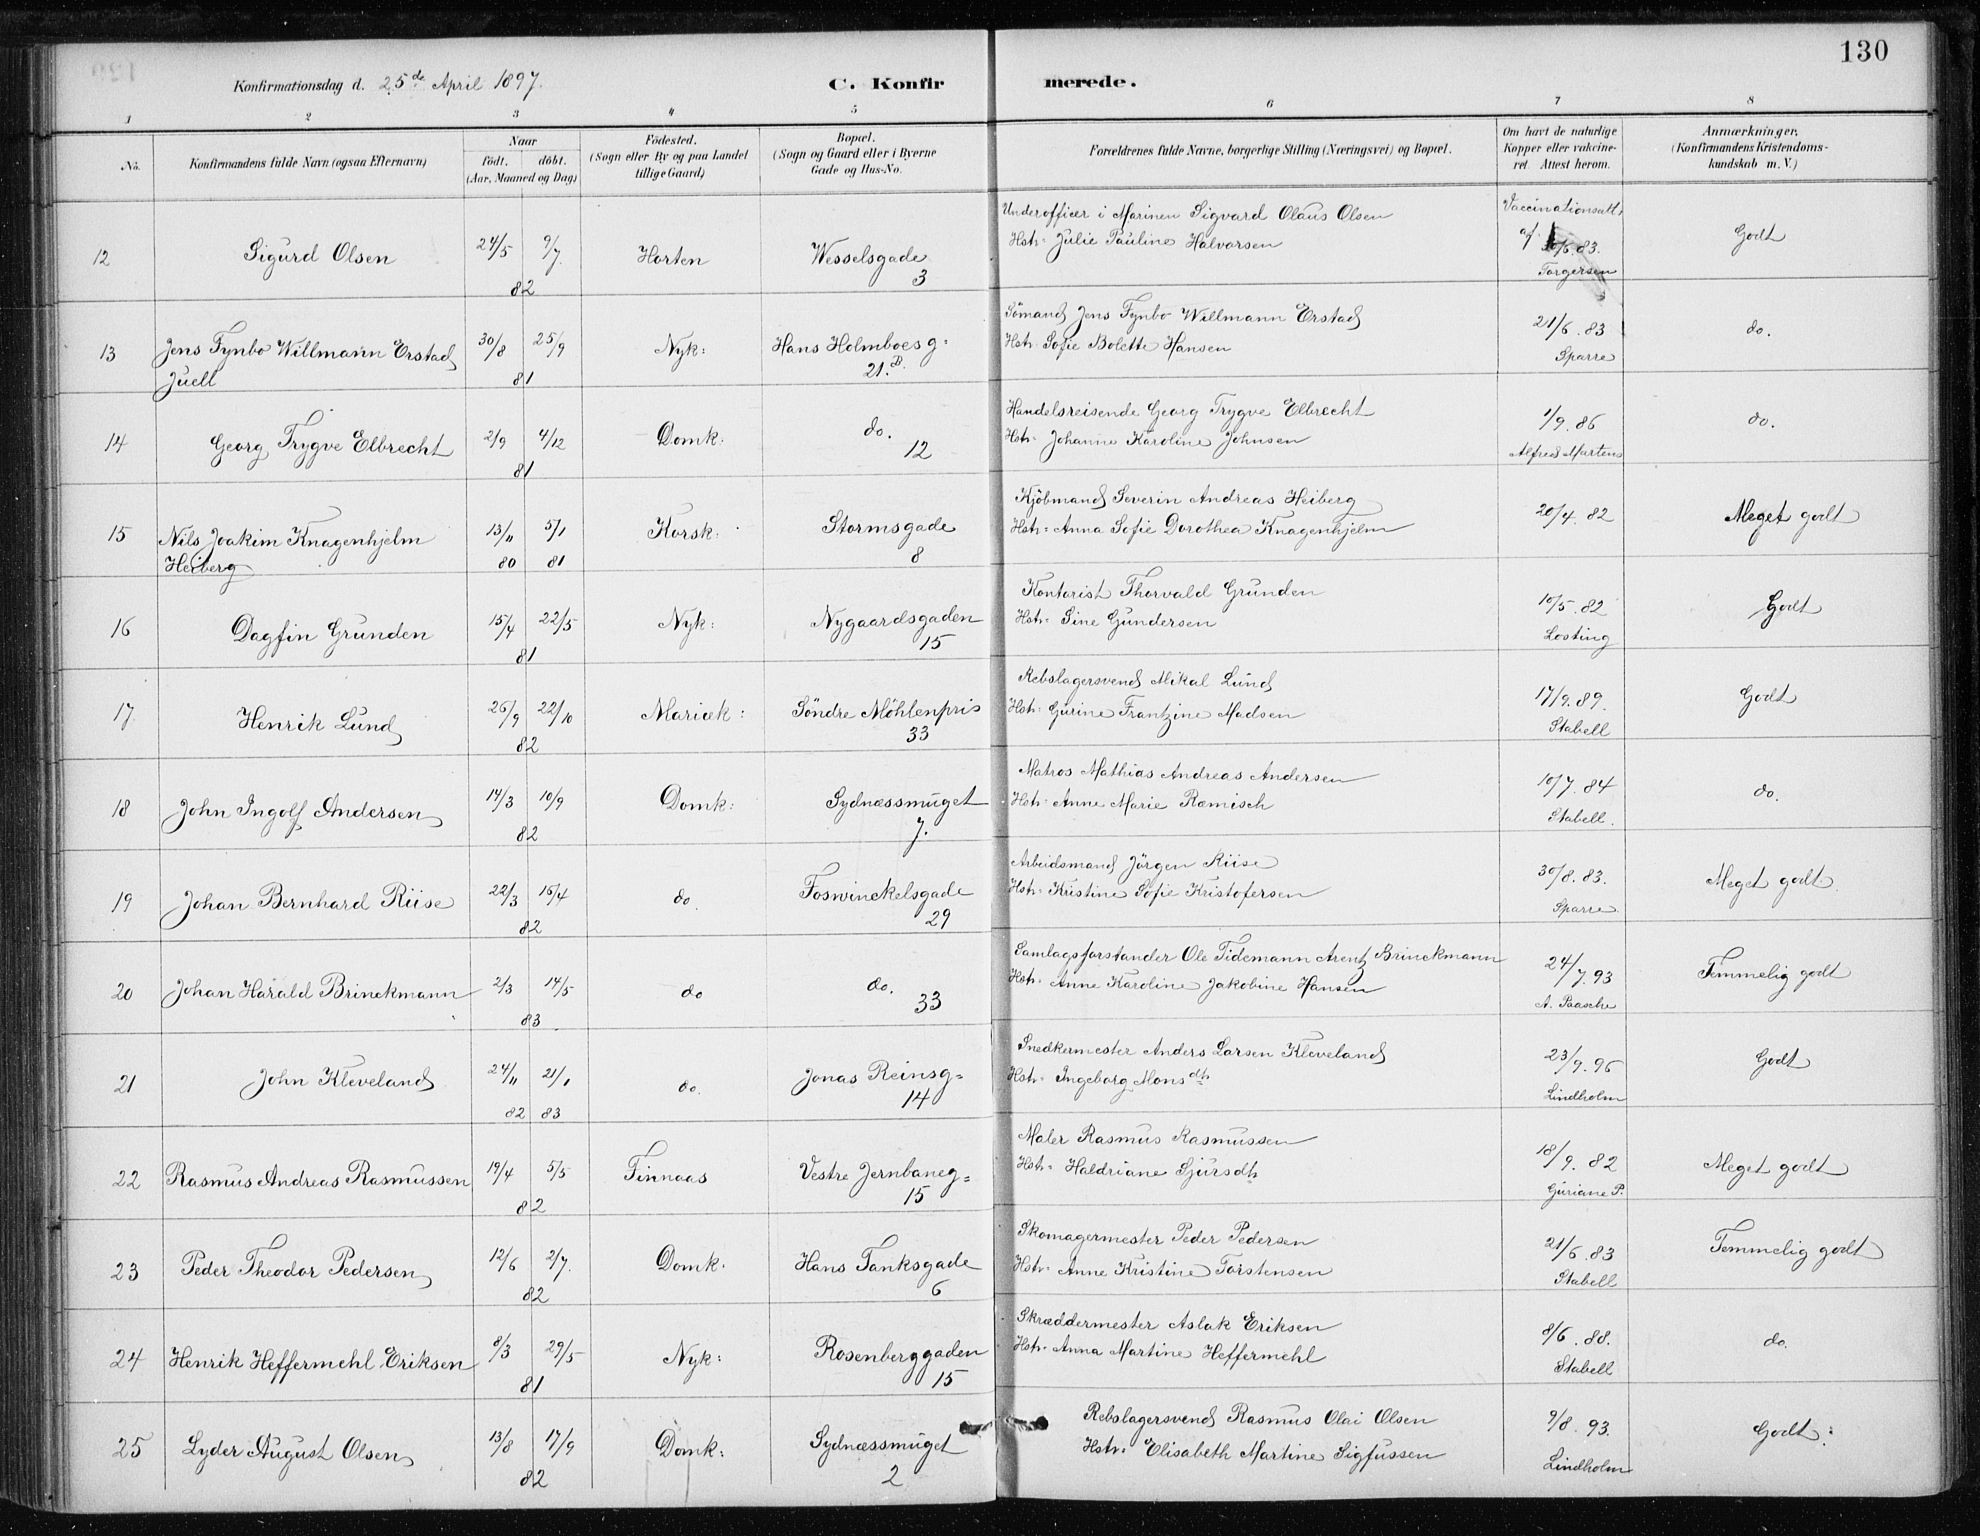 130
Konfirmationsdag d. 25de April 1897.
C. Konfirmerede.
1 2 3 4 5 6 7 8
No.
Konfirmandens fulde Navn (ogsaa Efternavn)
Naar
födt. döbt.
(Aar, Maaned og Dag)
Födested.
(Sogn eller By og paa Landet
tillige Gaard)
Bopæl.
(Sogn og Gaard eller i Byerne
Gade og Hus-No.
Forældrenes fulde Navne, borgerlige Stilling (Næringsvei) og Bopæl.
Om havt de naturlige
Kopper eller vakcine-
ret. Attest herom.
Anmærkninger.
(Konfirmandens Kristendoms-
kundskab m. V.)
12 Sigurd Olsen 24/5 9/7 82 Horten Wesselsgade 3
Underofficer i Marinen Sigvard Olaus Olsen
Hstr: Julie Pauline Halvorsen
Vaccinationsatt.
af 30/5.83.
Torgersen
Godt
13 Jens Fynbo Willmann Erstad
Juell
30/8 25/9 81 Nyk: Hans Holmboesg: 21.B.
Sömand Jens Fynbo Willmann Erstad
Hstr: Sofie Bolette Hansen
21/6.83
Sparre
do.
14 Georg Trygve Elbrecht 2/9 4/12 81 Domk: do. 12
Handelsreisende Georg Trygve Elbrecht
Hstr: Johanne Karoline Johnsen
1/9.86
Alfred Martens
do.
15 Nils Joakim Knagenhjelm
Heiberg
13/11 80 5/1 81 Korsk: Stormsgade 8
Kjöbmand Severin Andreas Heiberg
Hstr: Anna Sofie Dorothea Knagenhjelm
20/4.82
Meget godt
16 Dagfin Grunden 15/4 22/5 81 Nyk: Nygaardsgaden 15
Kontorist Thorvald Grunden
Hstr: Sine Gundersen
10/5.82
Losting
Godt
17. Henrik Lund 26/9 22/10 82 Mariæk: Söndre Möhlenpris 33
Rebslagersvend Mikal Lund
Hstr: Gurine Frantzine Madsen
17/9.89.
Stabell
Godt
18 John Ingolf Andersen 14/3 10/9 82 Domk: Sydnæssmuget 7.
Matros Mathias Andreas Andersen
Hstr: Anne Marie Ræmisch
10/7.84
Stabell.
do.
19 Johan Bernhard Riise 22/3 16/4 82 do. Foswinckelsgade 29
Arbeidsmand Jörgen Riise
Hstr: Kristine Sofie Kristofersen
30/8.83.
Sparre.
Meget godt.
20 Johan Harald Brinckmann 2/3 14/5 83 do do. 33
Samlagsforstander Ole Tidemann Arentz Brinckmann
Hstr: Anne Karoline Jakobine Hansen
24/7.93
A. Paasche
Temmelig godt
21 John Kleveland 24/11 82 21/1 83 do. Jonas Reinsg= 14
Snedkermester Anders Larsen Kleveland
Hstr: Ingeborg Monsdtr
23/9.96
Lindholm
Godt
22 Rasmus Andreas Rasmussen 19/4 5/5 82 Finnaas Vestre Jernbaneg= 15
Maler Rasmus Rasmussen
Hstr: Haldriane Sjursdtr
18/9.82
Guriane P.
Meget godt
23 Peder Theodor Pedersen 12/6 2/7. 82 Domk. Hans Tanksgade 6
Skomagermester Peder Pedersen
Hstr: Anne Kristine Torstensen
21/6.83
Stabell
Temmelig godt
24 Henrik Heffermehl Eriksen 8/3 29/5 81 Nyk: Rosenberggaden 15
Skræddermester Aslak Eriksen
Hstr: Anna Martine Heffermehl
8/6.88.
Stabell
do.
25 Lyder August Olsen 13/8 17/9 82 Domk: Sydnæssmuget 2
Rebslagersvend Rasmus Olai Olsen
Hstr: Elisabeth Martine Sigfussen
9/8.93.
Lindholm
Godt.